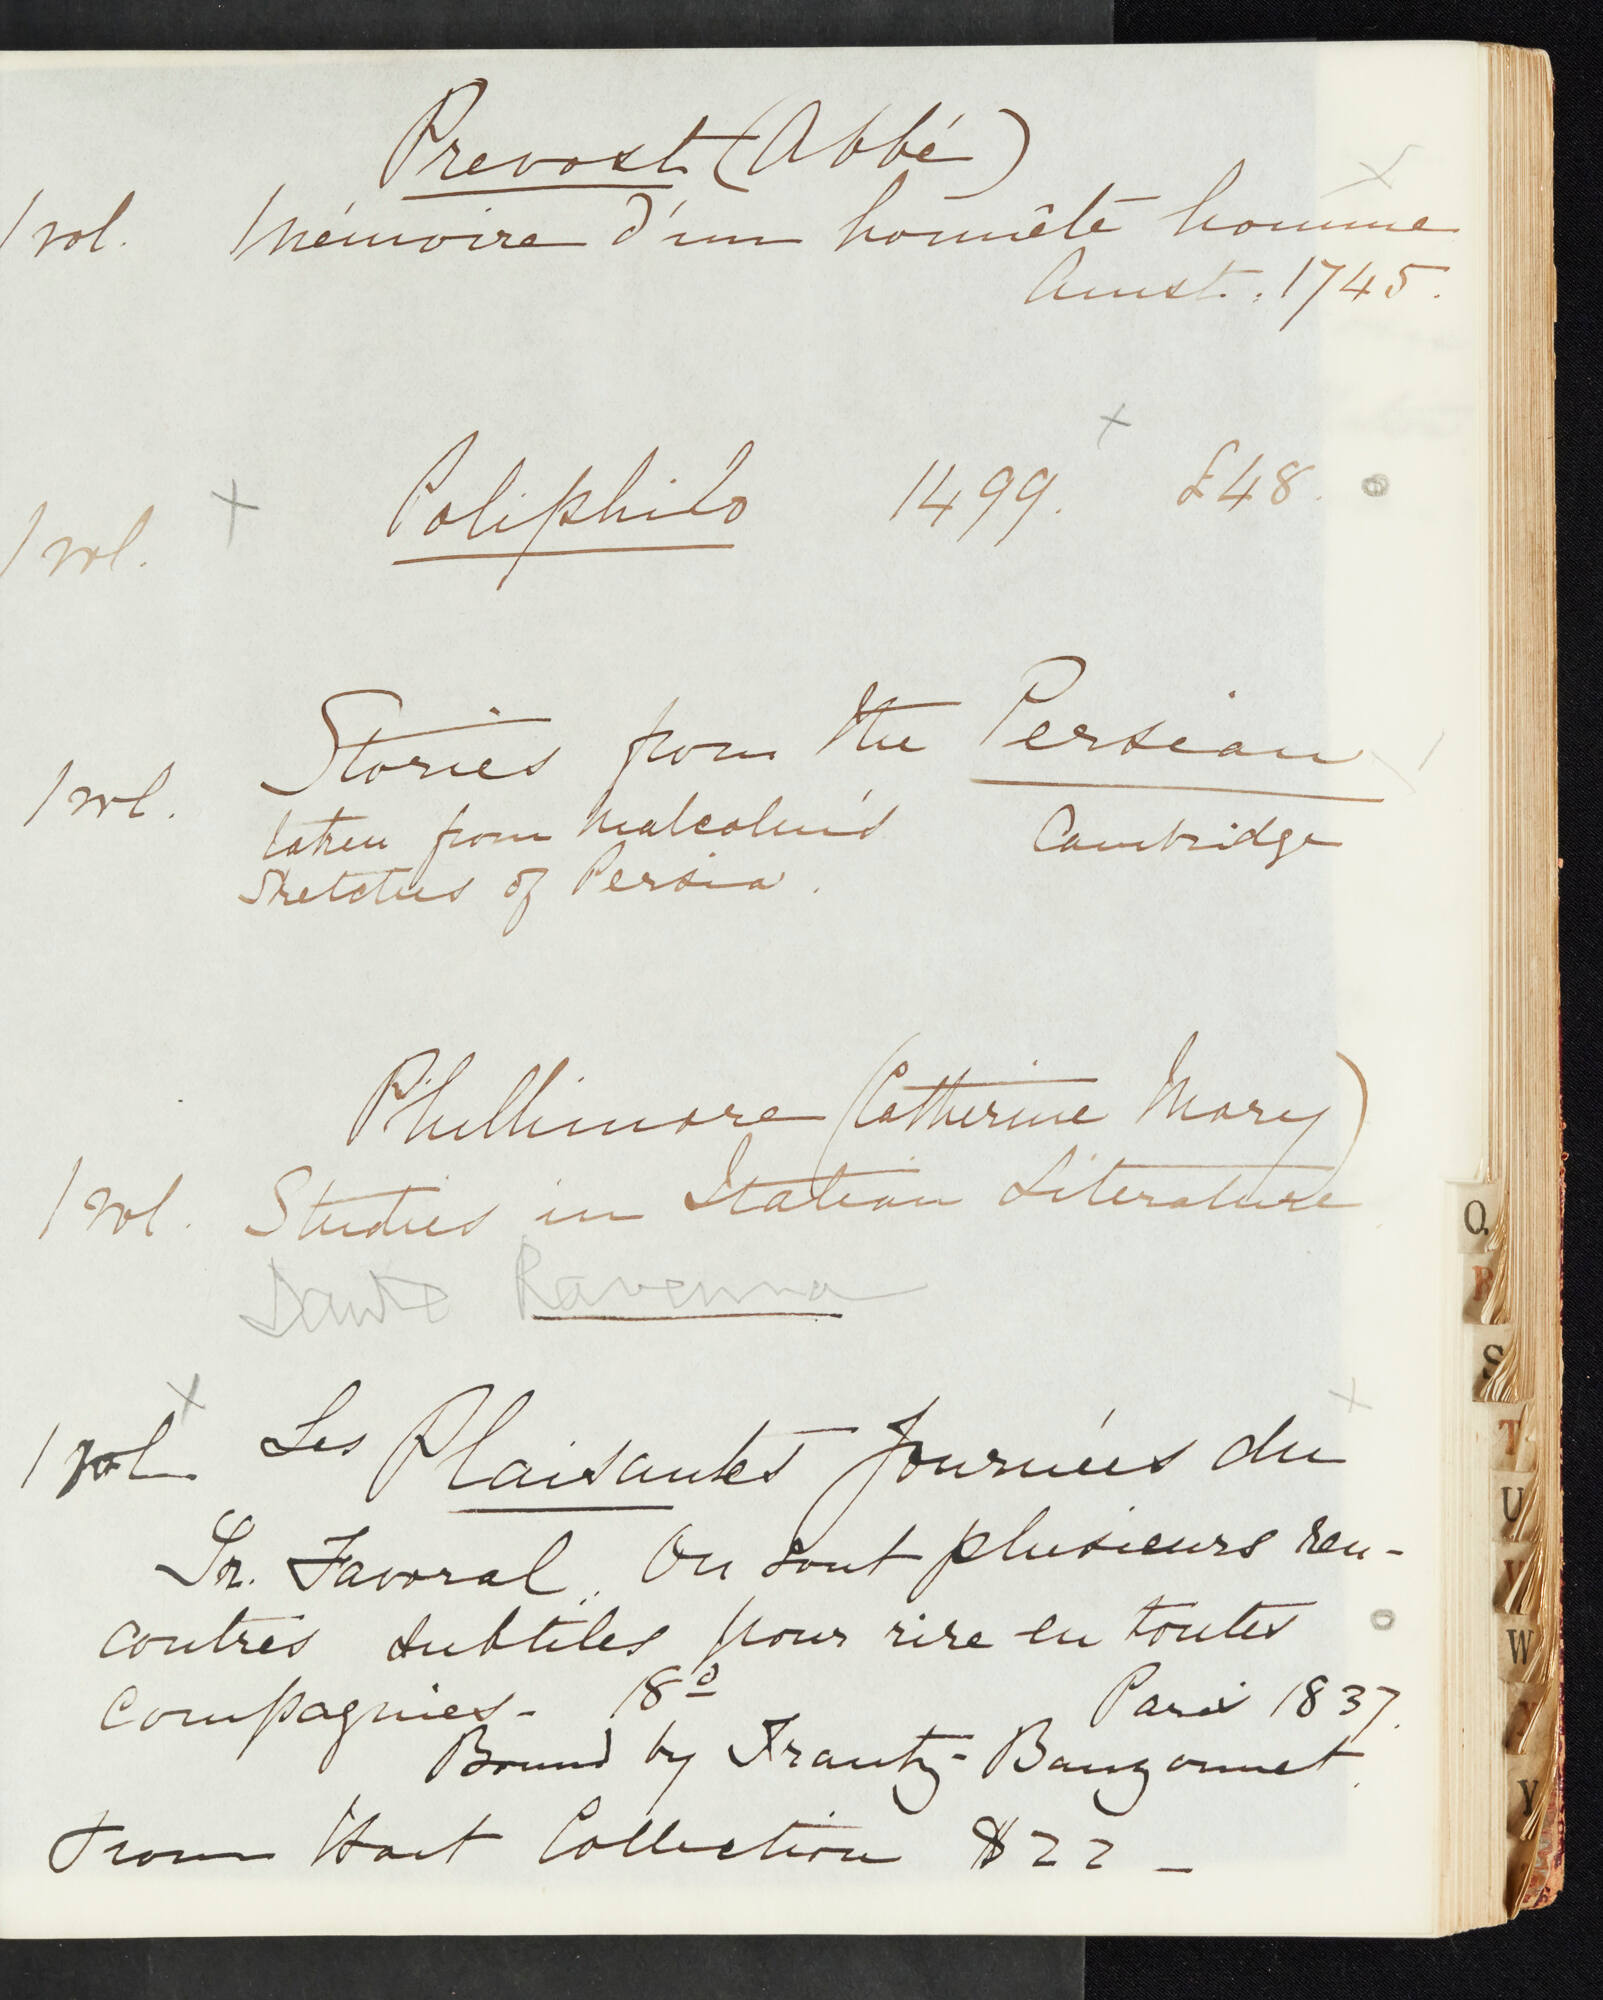 Prevost (Abbé)
1 vol. Mémoire d'un honnête homme
Amst. 1745.
1 vol. Poliphilo 1499. £48.
1 vol. Stories from the Persian
taken from Malcolm's Cambridge
Sketches of Persia.
Phillimore (Catherine Mary)
1 vol. Studies in Italian Literature
Dante Ravenna
1 vol Les Plaisantes Journées du
Sr. Favoral. Ou sont plusieurs ren-
contres subtiles pour rire en toutes
compagnies - 18º Paris 1837.
Bound by Trautz-Bauzonnet.
From Hart Collection $22 -
Q
R
S
T
U
V
W
Y